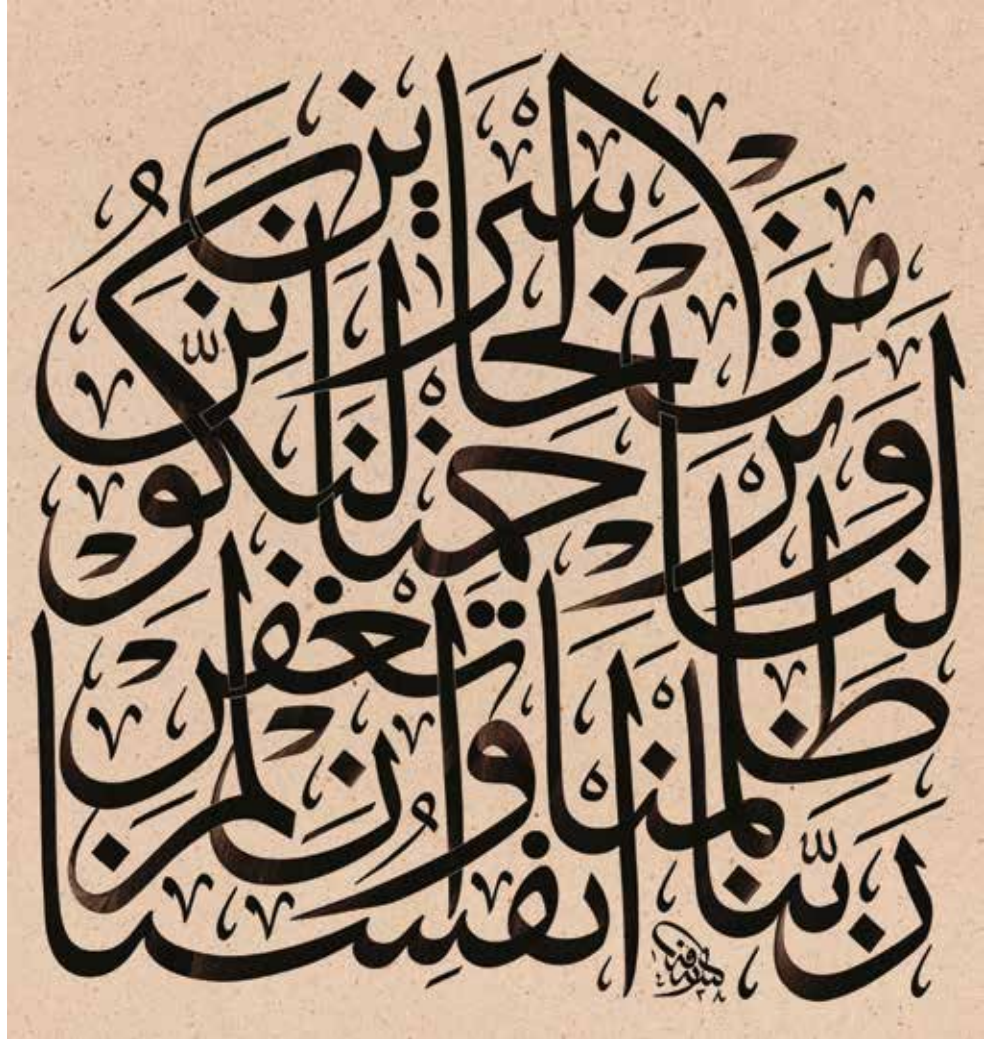 رَبَّنَا ظَلَمْنَا أَنْفُسَنَا وَإِنْ لَمْ تَغْفِرْ
لَنَا وَتَرْحَمْنَا لَنَكُونَنَّ
مِنَ الْخَاسِرِينَ